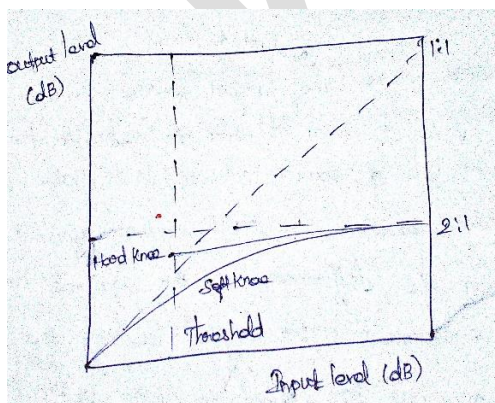 output level
(dB)
1:1
2:1
Hard Knee
Soft Knee
Threshold
Input level (dB)